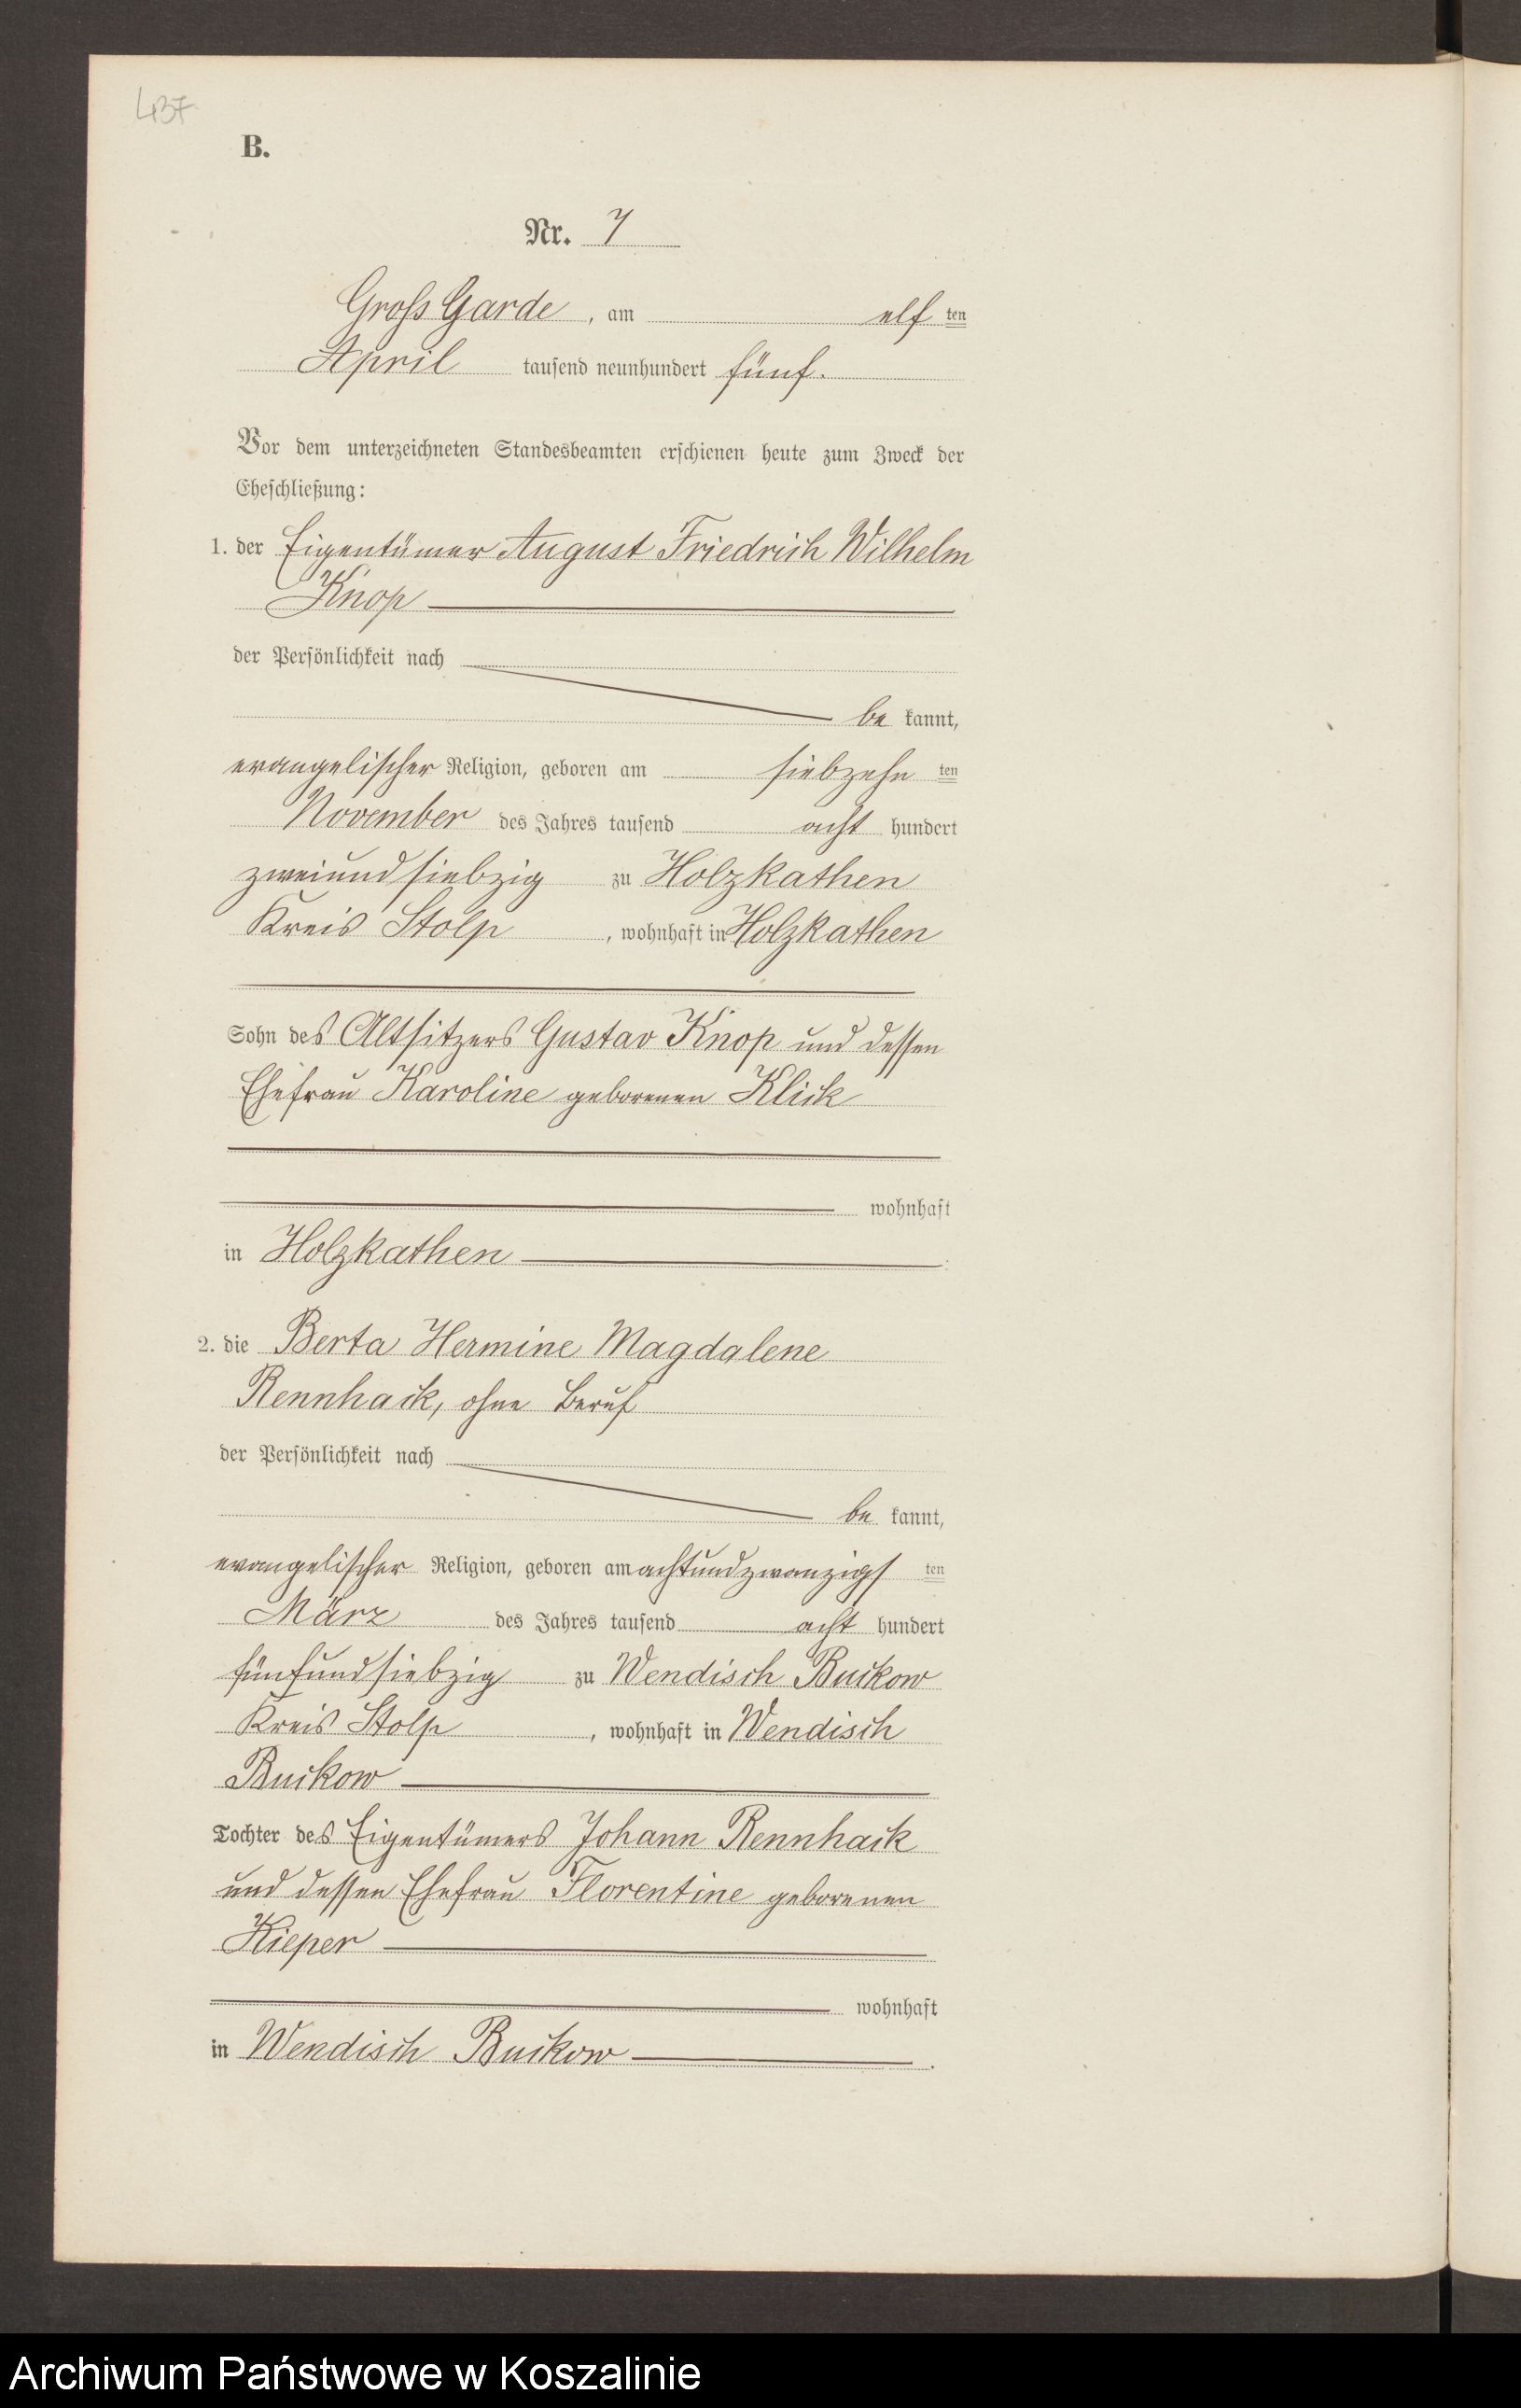 437
B.
Nr. 7
Gross Garde, am elf ten
April tausend neunhundert fünf.
Vor dem unterzeichneten Standesbeamten erschienen heute zum Zweck der
Eheschließung:
1. der Eigentümer August Friedrich Wilhelm
Knop
der Persönlichkeit nach
be kannt,
evangelischer Religion, geboren am siebzehn ten
November des Jahres tausend acht hundert
zweiundsiebzig zu Holzkathen
Kreis Stolp, wohnhaft in Holzkathen
Sohn des Altsitzers Gustav Knop und dessen
Ehefrau Karoline geborenen Klick
wohnhaft
in Holzkathen
2. die Berta Hermine Magdalene
Rennhack, ohne Beruf
der Persönlichkeit nach
be kannt,
evangelischer Religion, geboren am achtundzwanzigs ten
März des Jahres tausend acht hundert
fünfundsiebzig zu Wendisch Buckow
Kreis Stolp, wohnhaft in Wendisch
Buckow
Tochter des Eigentümers Johann Rennhack
und dessen Ehefrau Florentine geborenen
Kieper
wohnhaft
in Wendisch Buckow.
Archiwum Państwowe w Koszalinie